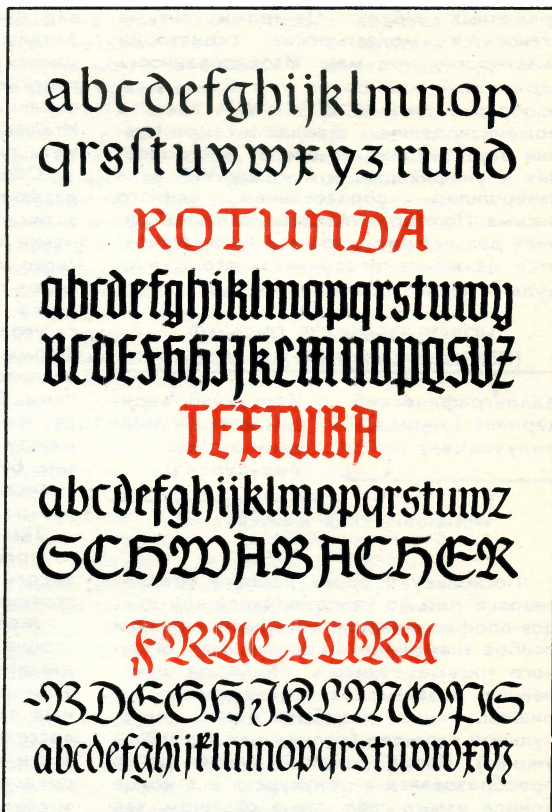 abcdefghijklmnop
qrsſtuvwxyz rund
ROTUNDA
abcdefghiklmopqrstuwy
BCDEFGHIJKLMNOPQSVZ
TEXTURA
abcdefghijklmopqrstuwz
SCHWABACHER
FRACTURA
-BDEGHJKLMOPS
abcdefghijklmnopqrstuvwxyz